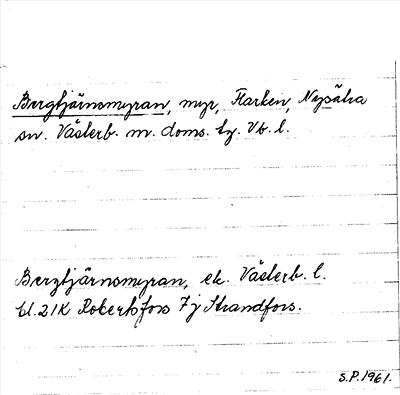 Bergtjärnsmyran, myr, Flarken, Nysätra
sn. Västerb. m. doms. tg. Vb. l.
Bergtjärnsmyran, ek. Västerb. l.
bl. 21K Robertsfors 7j Strandfors.
S.P. 1961.